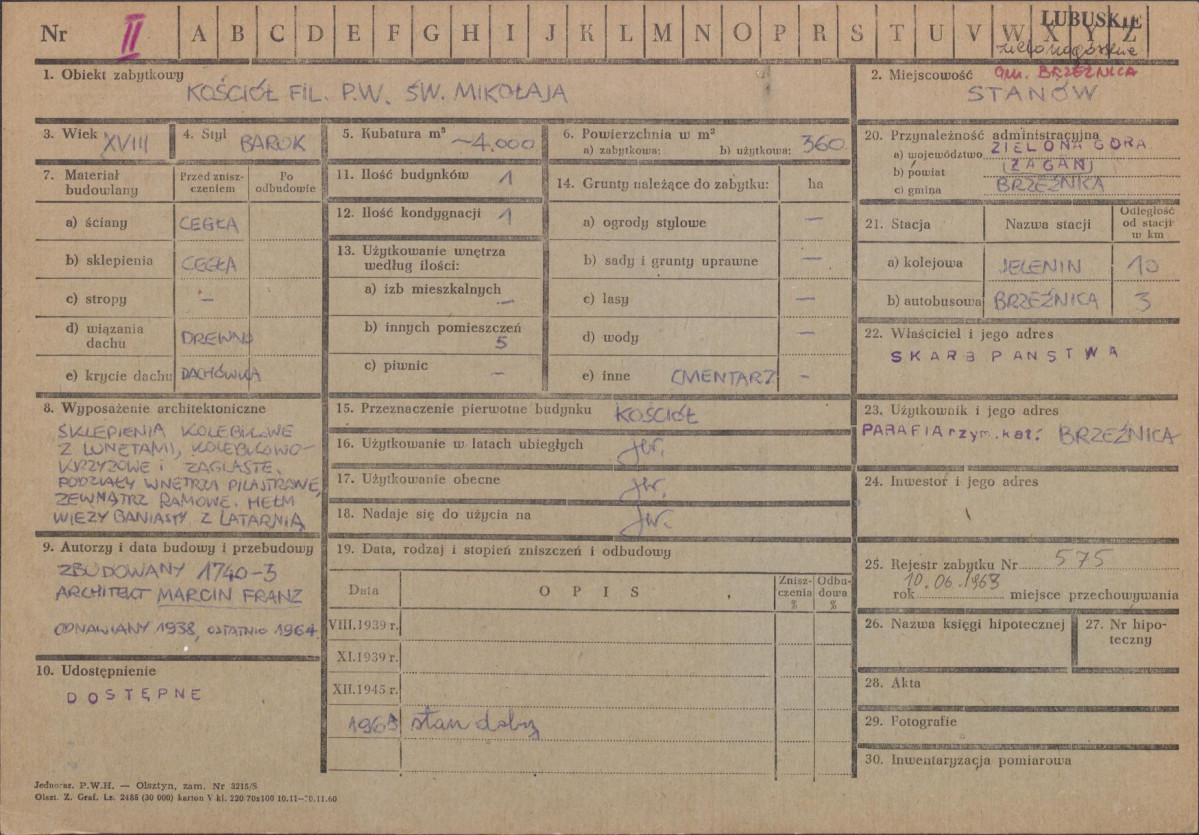 Nr II A B C D E F G H I J K L M N O P R S T U V W X Y Z
LUBUSKIE
zielonogórskie
1. Obiekt zabytkowy
KOŚCIÓŁ FIL. P.W. ŚW. MIKOŁAJA
2. Miejscowość gm. BRZEŹNICA
STANÓW
3. Wiek XVIII
4. Styl BAROK
5. Kubatura m³ ~4.000
6. Powierzchnia w m²
a) zabytkowa: b) użytkowa: 360
7. Materiał budowlany
Przed zniszczeniem
Po odbudowie
a) ściany CEGŁA
b) sklepienia CEGŁA
c) stropy —
d) wiązania dachu DREWNO
e) krycie dachu DACHÓWKA
8. Wyposażenie architektoniczne
SKLEPIENIA KOLEBKOWE
Z LUNETAMI, KOLEBKOWO-
KRZYŻOWE i ŻAGLASTE.
PODZIAŁY WNĘTRZA PILASTROWE,
ZEWNĄTRZ RAMOWE. HEŁM
WIEŻY BANIASTY Z LATARNIĄ
9. Autorzy i data budowy i przebudowy
ZBUDOWANY 1740-3
ARCHITEKT MARCIN FRANZ
ODNAWIANY 1938, OSTATNIO 1964.
10. Udostępnienie
DOSTĘPNE
11. Ilość budynków 1
12. Ilość kondygnacji 1
13. Użytkowanie wnętrza
według ilości:
a) izb mieszkalnych —
b) innych pomieszczeń
5
c) piwnic —
14. Grunty należące do zabytku: ha
a) ogrody stylowe —
b) sady i grunty uprawne —
c) lasy —
d) wody —
e) inne CMENTARZ -
15. Przeznaczenie pierwotne budynku KOŚCIÓŁ
16. Użytkowanie w latach ubiegłych jw.
17. Użytkowanie obecne jw.
18. Nadaje się do użycia na jw.
19. Data, rodzaj i stopień zniszczeń i odbudowy
Data
OPIS
Zniszczenia %
Odbudowa %
VIII.1939 r.
XI.1939 r.
XII.1945 r.
stan dobry
20. Przynależność administracyjna
a) województwo ZIELONA GÓRA
b) powiat (ŻAGAŃ)
c) gmina BRZEŹNICA
21. Stacja
Nazwa stacji
Odległość od stacji w km
a) kolejowa JELENIN 10
b) autobusowa BRZEŹNICA 3
22. Właściciel i jego adres
SKARB PAŃSTWA
23. Użytkownik i jego adres
PARAFIA rzym. kat. BRZEŹNICA
24. Inwestor i jego adres
25. Rejestr zabytku Nr 575
10.06.1963
rok miejsce przechowywania
26. Nazwa księgi hipotecznej
27. Nr hipoteczny
28. Akta
29. Fotografie
30. Inwentaryzacja pomiarowa
Jednoraz. P.W.H. — Olsztyn, zam. Nr 3215/S
Olszt. Z. Graf. Lz. 2485 (30 000) karton V kl. 220 70x100 10.11—20.11.60